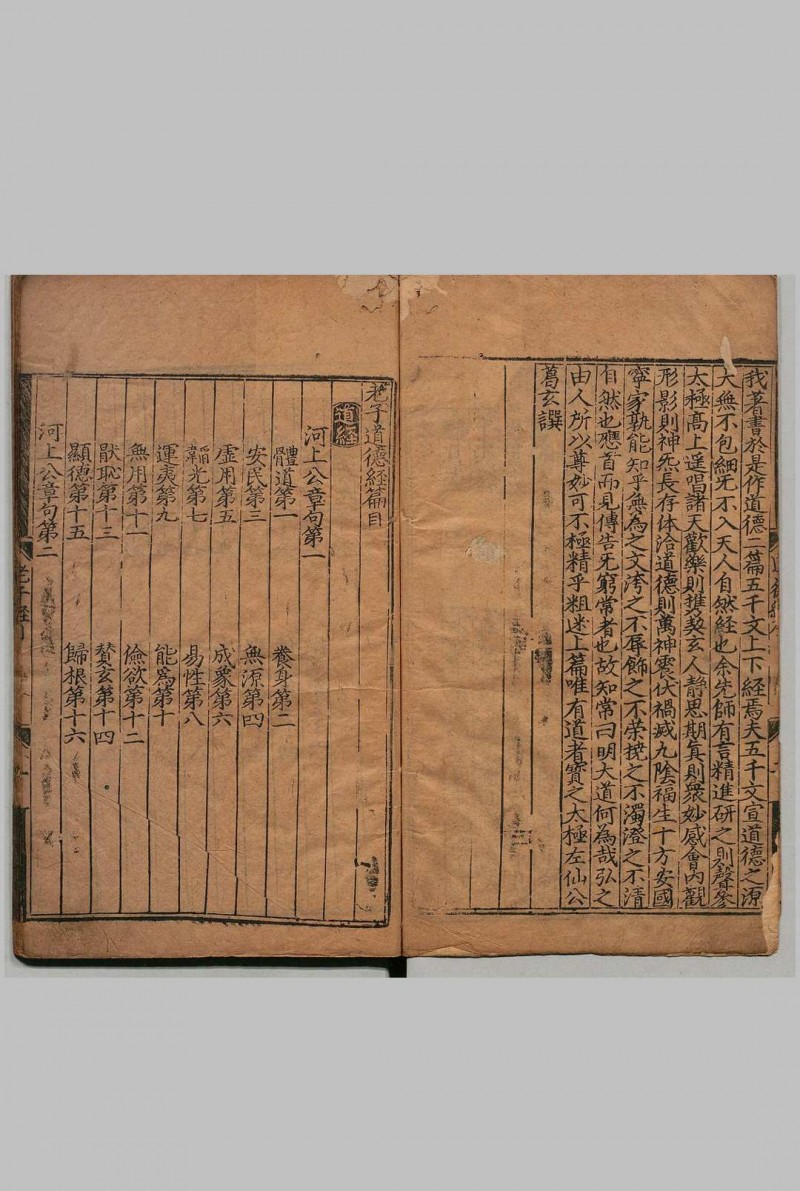 我著書於是作道德二篇五千文上下經焉夫五千文宣道德之源
大無不包細无不入天人自然経也余先師有言精進研之則聲參
太極高上遥唱諸天歡樂則携契玄人静思期真則衆妙感會內觀
形影則神炁長存体洽道德則萬神震伏禍滅九陰福生十方安國
寧家孰能知乎無為之文洿之不辱餙之不荣撓之不濁澄之不清
自然也應首而見傳告无窮常者也故知常曰明大道何為哉弘之
由人所以尊妙可不極精乎粗迷上篇唯有道者寶之太極左仙公
葛玄譔
老子道德経篇目
道経
河上公章句第一
體道第一 養身第二
安民第三 無源第四
虚用第五 成象第六
韜光第七 易性第八
運夷第九 能為第十
無用第十一 儉欲第十二
猒恥第十三 賛玄第十四
顯德第十五 歸根第十六
河上公章句第二